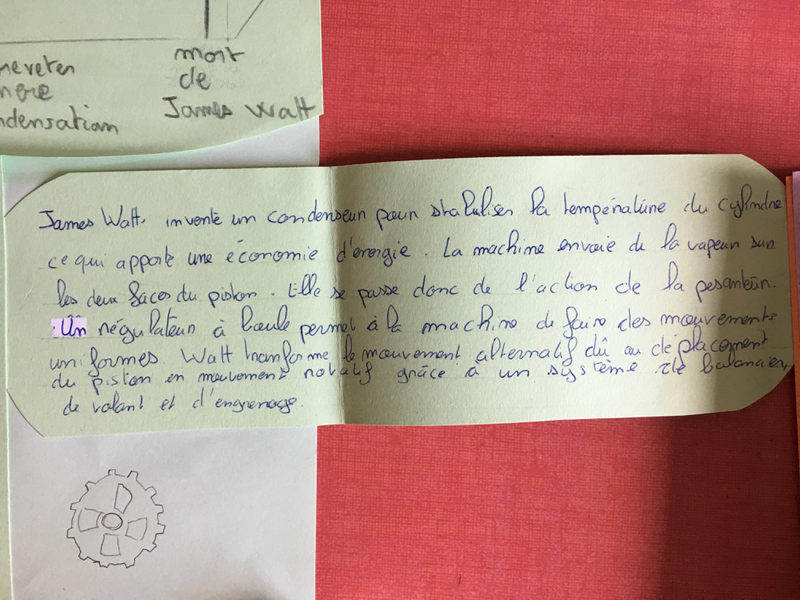 mort
de
James Watt
James Watt invente un condenseur pour stabiliser la température du cylindre
ce qui apporte une économie d'énergie. La machine envoie de la vapeur sur
les deux faces du piston. Elle se passe donc de l'action de la pesanteur.
Un régulateur à boule permet à la machine de faire des mouvements
uniformes. Watt tranforme le mouvement alternatif dû au déplacement
du piston en mouvement rotatif grâce à un système de balancier,
de volant et d'engrenage.